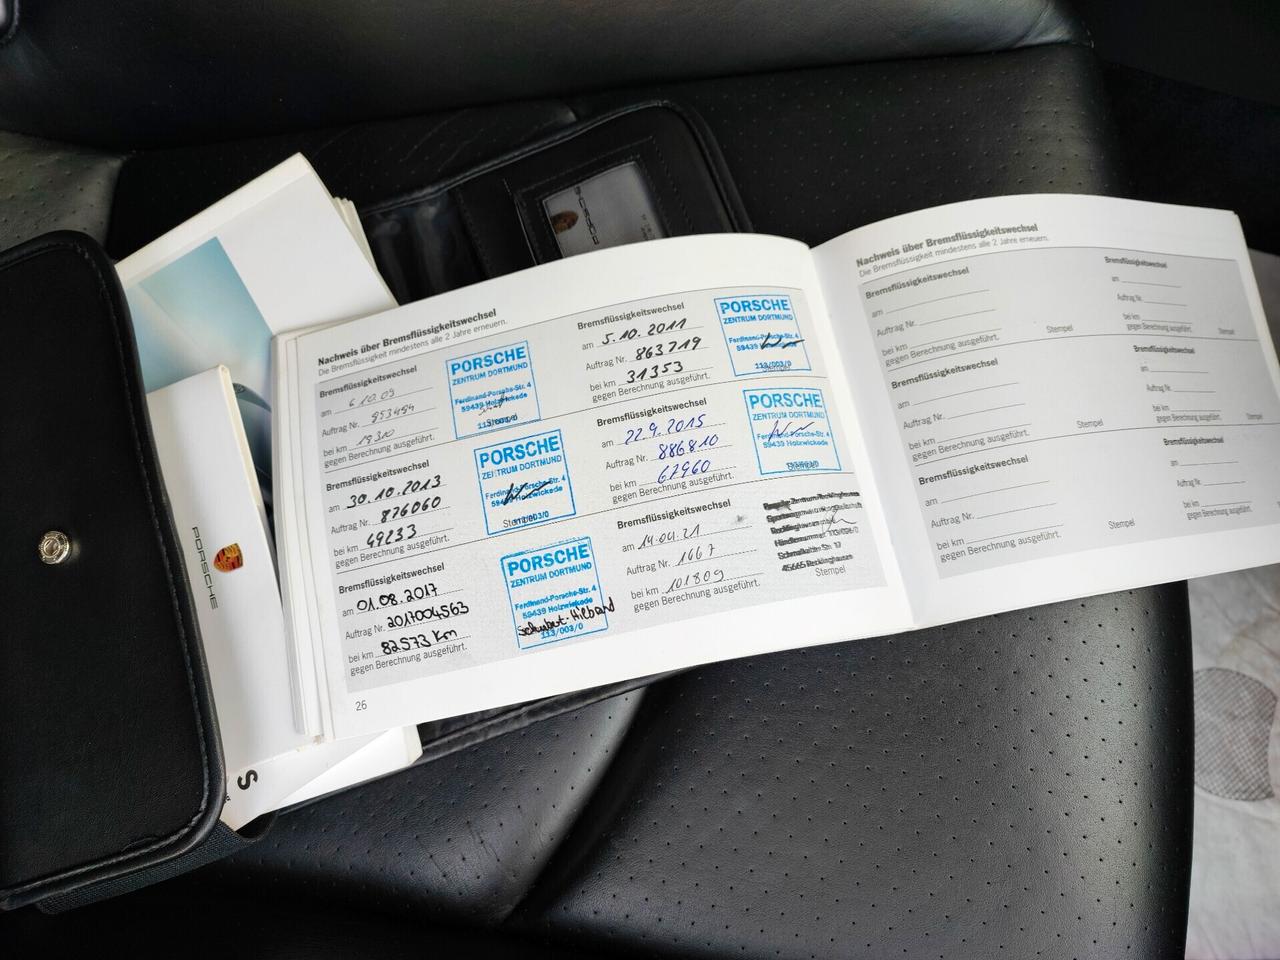 Nachweis über Bremsflüssigkeitswechsel
Die Bremsflüssigkeit mindestens alle 2 Jahre erneuern.
Bremsflüssigkeitswechsel
am 6.10.09
Auftrag Nr. 853494
bei km 19310
gegen Berechnung ausgeführt.
PORSCHE
ZENTRUM DORTMUND
Ferdinand-Porsche-Str. 4
59439 Holzwickede
113/003/0
Stempel
Bremsflüssigkeitswechsel
am 5.10.2011
Auftrag Nr. 863719
bei km 31353
gegen Berechnung ausgeführt.
PORSCHE
ZENTRUM DORTMUND
Ferdinand-Porsche-Str. 4
59439
113/003/0
Stempel
Bremsflüssigkeitswechsel
am 30.10.2013
Auftrag Nr. 876060
bei km 49233
gegen Berechnung ausgeführt.
PORSCHE
ZENTRUM DORTMUND
Ferdinand-Porsche-Str. 4
59439 Holzwickede
113/003/0
Stempel
Bremsflüssigkeitswechsel
am 22.9.2015
Auftrag Nr. 886810
bei km 67960
gegen Berechnung ausgeführt.
PORSCHE
ZENTRUM DORTMUND
Ferdinand-Porsche-Str. 4
59439 Holzwickede
Stempel
Bremsflüssigkeitswechsel
am 01.08.2017
Auftrag Nr. 2017004563
bei km 82573 Km
gegen Berechnung ausgeführt.
PORSCHE
ZENTRUM DORTMUND
Ferdinand-Porsche-Str. 4
59439 Holzwickede
113/003/0
Bremsflüssigkeitswechsel
am 14.04.21
Auftrag Nr. 1667
bei km 101809
gegen Berechnung ausgeführt.
Zentrum Recklinghausen
45665 Recklinghausen
Stempel
26
Nachweis über Bremsflüssigkeitswechsel
Die Bremsflüssigkeit mindestens alle 2 Jahre erneuern.
Bremsflüssigkeitswechsel
am
Auftrag Nr.
bei km
gegen Berechnung ausgeführt.
Stempel
Bremsflüssigkeitswechsel
am
Auftrag Nr.
bei km
gegen Berechnung ausgeführt.
Stempel
Bremsflüssigkeitswechsel
am
Auftrag Nr.
bei km
gegen Berechnung ausgeführt.
Stempel
Bremsflüssigkeitswechsel
am
Auftrag Nr.
bei km
gegen Berechnung ausgeführt.
Stempel
Bremsflüssigkeitswechsel
am
Auftrag Nr.
bei km
gegen Berechnung ausgeführt.
Stempel
Bremsflüssigkeitswechsel
am
Auftrag Nr.
bei km
gegen Berechnung ausgeführt.
PORSCHE
PORSCHE
S